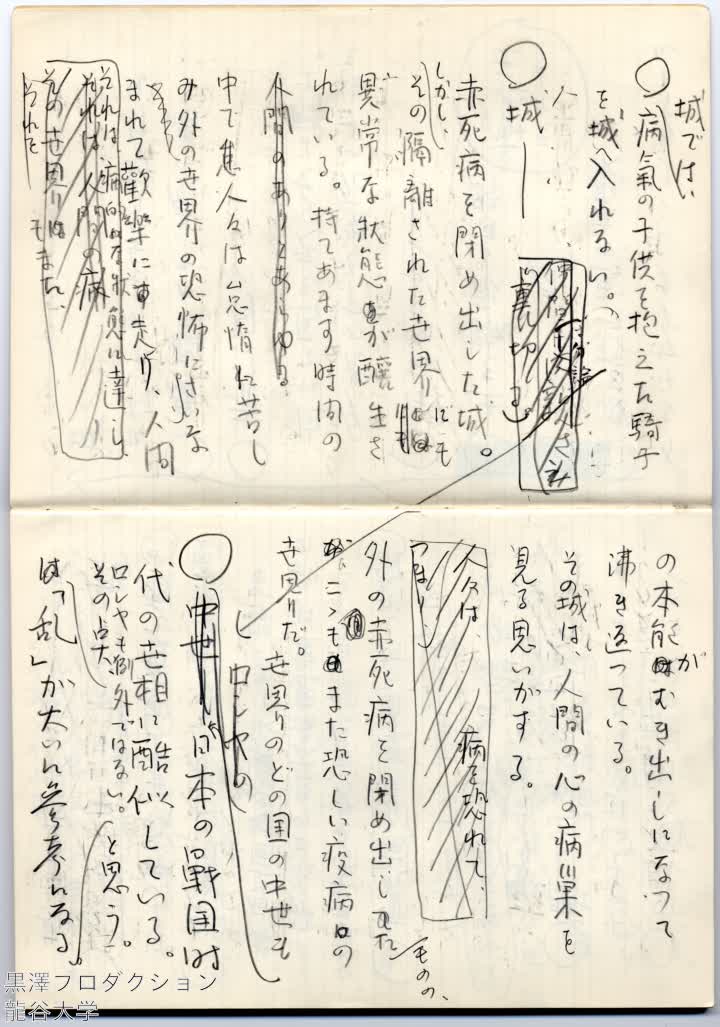 城では、
○病気の子供を抱えた騎士
を城へ入れない。
○城――
赤死病を閉め出した城。
しかし、その隔離された世界にも
異常な状態が醸生さ
れている。持てあます時間の
人間のありとあらゆる
中で人々は怠惰に苦し
み外の世界の恐怖にさいな
まれて歓楽に走り、人間
それは病的な状態に達し、
それは人間の病
その世界は
もまた、
それを
の本能がむき出しになって
沸き返っている。
その城は、人間の心の病巣を
見る思いがする。
人々は、病を恐れて、
つまり、
外の赤死病を閉め出したものの、
こゝもまた恐しい疫病の
世界だ。
世界のどの国の中世も
ロシヤの
○中世は日本の戦国時
代の世相に酷似している。
ロシヤも例外ではない。と思う。
その点
は「乱」が大いに参考になる。
黒澤プロダクション
龍谷大学